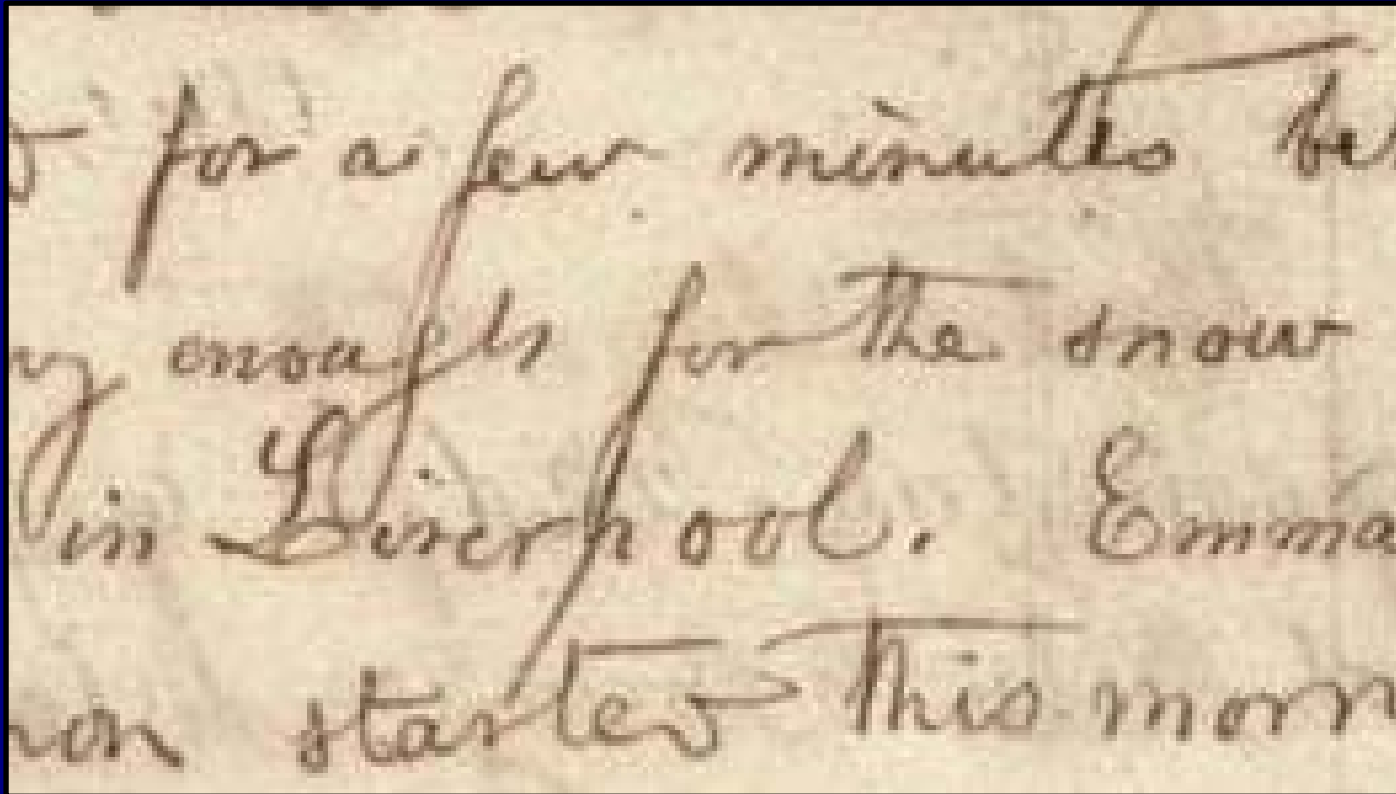 for a few minutes be
enough for the snow
in Liverpool. Emma
started this morn